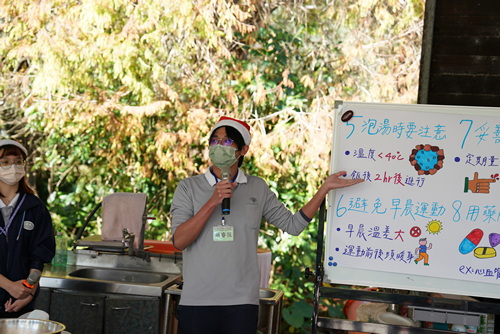 5 泡湯時要注意
• 溫度<40℃
• 飯後2hr後進行
6 避免早晨運動
• 早晨溫差大
• 運動前後填暖身
7 妥善
• 定期量
8 用藥
ex:心血管